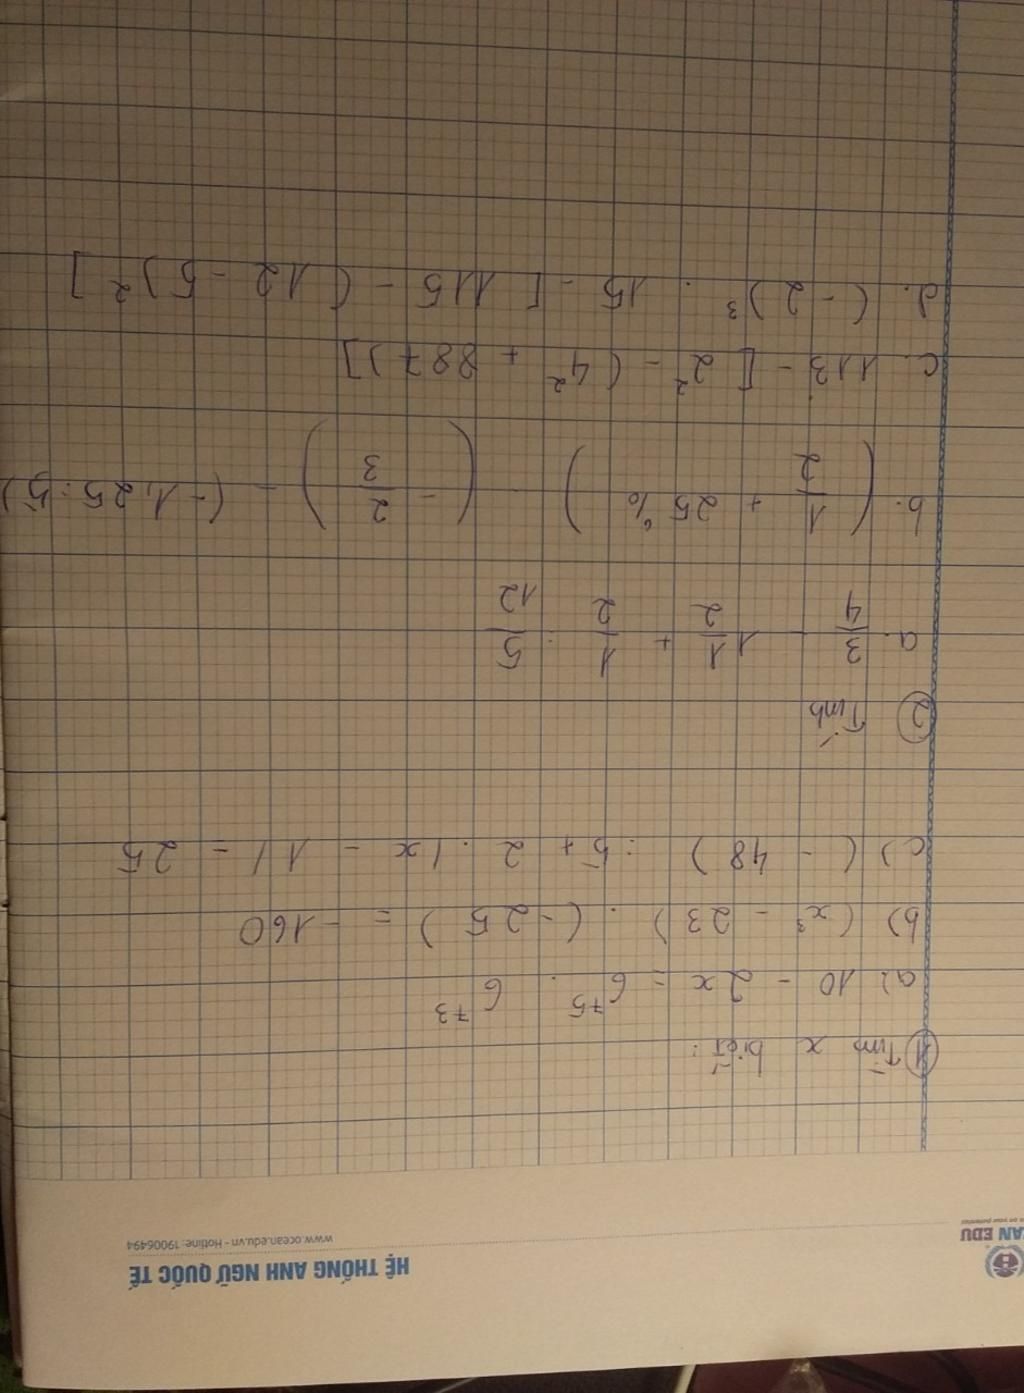 AN EDU
HỆ THỐNG ANH NGỮ QUỐC TẾ
www.ocean.edu.vn - Hotline: 19006494
① Tìm x biết:
a) 10 - 2x = 6⁷⁵ : 6⁷³
b) (x³ - 23) . (-25) = -160
c) (-48) : 5 + 2 . |x - 1| = 25
② Tính
a. 3/4 - 1 1/2 + 1/2 : 5/12
b. (1/2 + 25%) - (-2/3) - (-1,25 : 5)
c. 113 - [2² - (4² + 887)]
d. (-2)³ . 15 - [115 - (12 - 5)²]